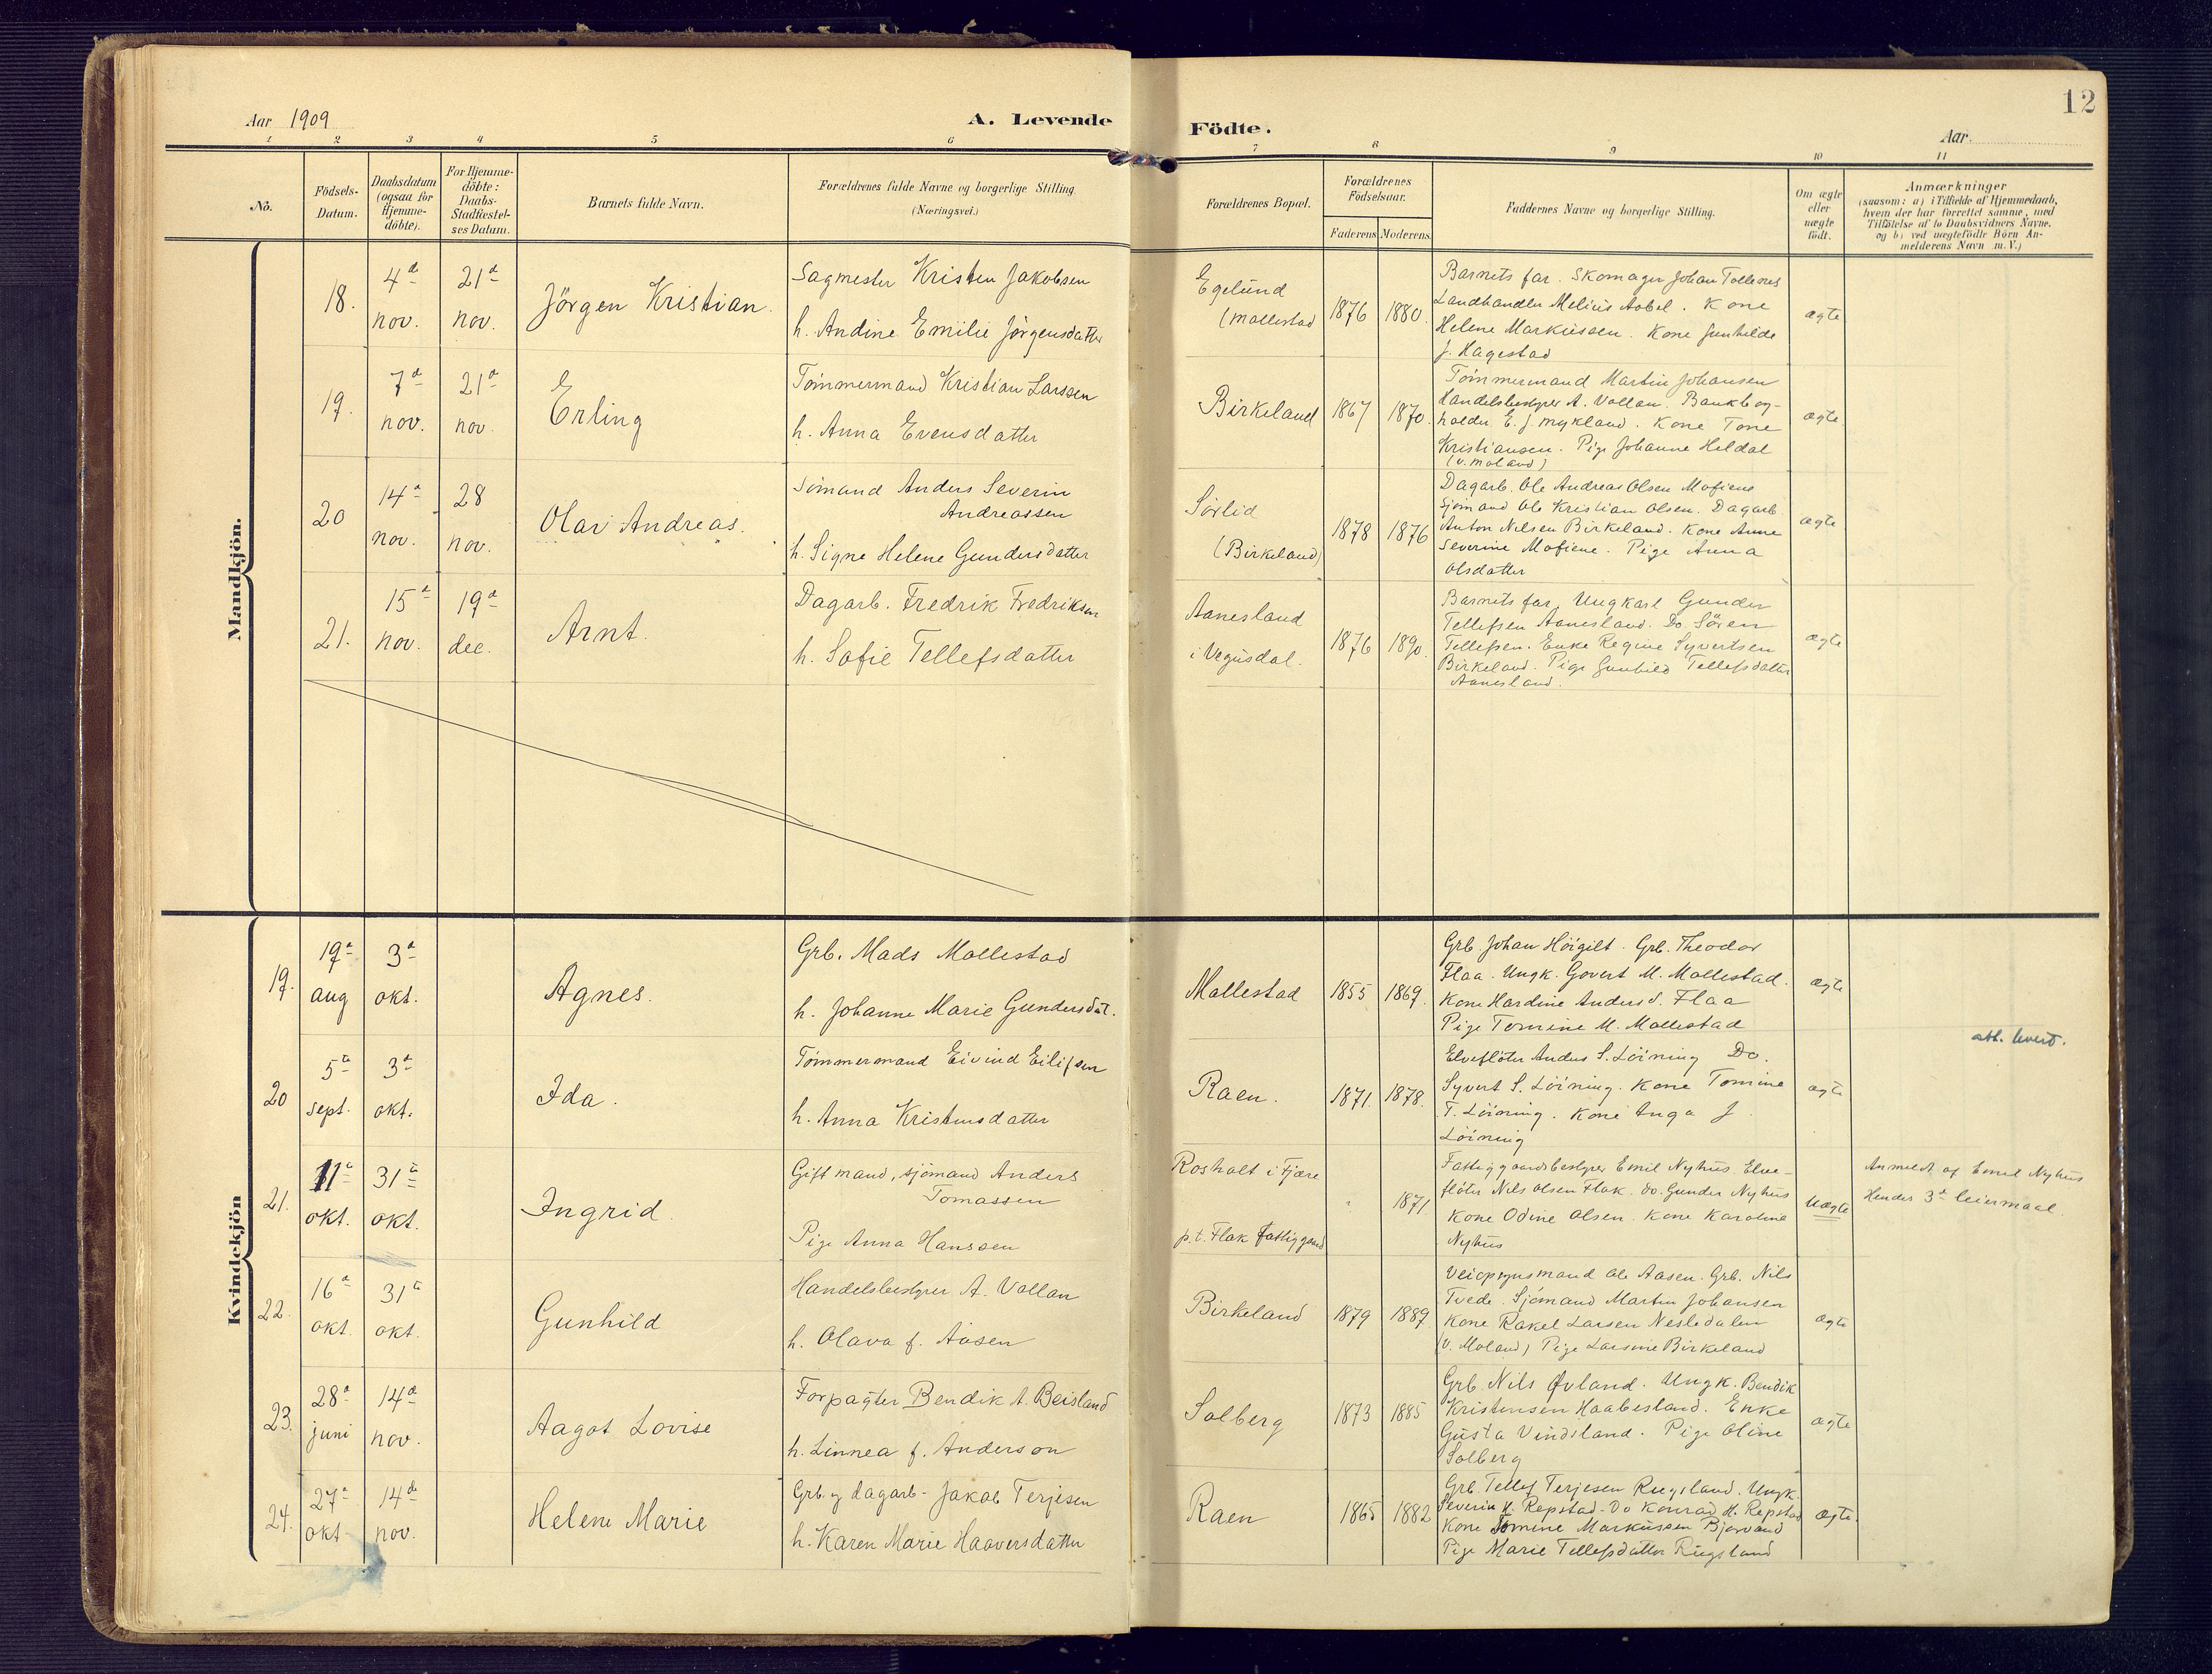 12
Aar 1909
A. Levende
Födte.
Aar.
1 2 3 4 5 6 7 8 9 10 11
No.
Födsels-
Datum.
Daabsdatum
(ogsaa for
Hjemme-
döbte).
For Hjemme-
döbte:
Daabs-
Stadfæstel-
ses Datum.
Barnets fulde Navn.
Forældrenes fulde Navne og borgerlige Stilling.
(Næringsvei.)
Forældrenes Bopæl.
Forældrenes
Födselsaar.
Faderens
Moderens.
Faddernes Navne og borgerlige Stilling.
Om ægte
eller
uægte
födt.
Anmærkninger
(saasom: a) i Tilfælde af Hjemmedaab,
hvem der har forrettet samme, med
Tilföielse af to Daabsvidners Navne,
og b) ved uægtefödte Börn An-
melderens Navn m. V.)
Mandkjön.
18.
4d
nov.
21d
nov.
Jörgen Kristian.
Sagmester Kristen Jakobsen
h. Andine Emilie Jörgensdatter
Egelund
(Mollestad
1876
1880.
Barnets far. Skomager Johan Tollnes
Landhandler Melius Aabel. Kone
Helene Markussen. Kone Gunhilde
J. Hagestad
ægte
19.
7d
nov.
21d
nov.
Erling
Tömmermand Kristian Larssen
h. Anna Evensdatter
Birkeland
1867
1870.
Tömmermand Martin Johansen
Handelsbestyrer A. Vollan. Bankbog-
holder E. J. Mykland. Kone Tone
Kristiansen. Pige Johanne Heldal
(v. Moland)
ægte
20
14d
nov.
28
nov.
Olav Andreas.
Sömand Anders Severin
Andreassen
h. Signe Helene Gundersdatter
Sörlid
(Birkeland)
1878
1876
Dagarb. Ole Andreas Olsen Mofiene
Sjömand Ole Kristian Olsen. Dagarb.
Anton Nilsen Birkeland. Kone Anne
Severine Mofiene. Pige Anna
Olsdatter
ægte
21.
15d
nov.
19d
dec.
Arnt.
Dagarb. Fredrik Fredriksen
h. Sofie Tellefsdatter
Aanesland
i Vegusdal.
1876
1890.
Barnets far, Ungkarl Gunder
Tellefsen Aanesland. Do Sören
Tellefsen. Enke Regine Syvertsen
Birkeland. Pige Gunhild Tellefsdatter
Aanesland.
ægte
Kvindekjön
19.
19d
aug
3d
okt.
Agnes.
Grb. Mads Mollestad
h. Johanne Marie Gundersdat.
Mollestad
1855
1869.
Grb. Johan Höigilt. Grb. Theodor
Flaa. Ungk. Govert M. Mollestad.
Kone Hardine Anders d. Flaa
Pige Tomine M. Mollestad
ægte
att. hvert.
20
5te
sept.
3d
okt.
Ida.
Tömmermand Eivind Eilifsen
h. Anna Kristensdatter
Raen.
1871.
1878.
Elveflöter Anders S. Löining Do.
Syvert S. Löining. Kone Tomine
T. Löining. Kone Inga J.
Löining
ægte
21.
11te
okt.
31te
okt.
Ingrid
Gift mand, sjömand Anders
Tomassen
Pige Anna Hanssen
Rosholt i Fjære
p.t. Flak fattiggaard
1871
Fattiggaardsbestyrer Emil Nyhus. Elve-
flöter Nils Olsen Flak. Do. Gunder Nyhus
Kone Odine Olsen. Kone Karoline
Nyhus
Uægte
Anmeldt af Emil Nyhus
Hendes 3d leiermaal.
22.
16d
okt.
31te
okt.
Gunhild
Handelsbestyrer A. Vollan
h. Olava f. Aasen
Birkeland
1879
1889
Veiopsynsmand Ole Aasen. Grb. Nils
Tvede. Sjömand Martin Johansen
Kone Rakel Larsen Nesledalen
(v. Moland) Pige Larsine Birkeland
ægte
23.
28d
juni
14d
nov.
Aagot Lovise
Forpagter Bendik A. Beisland
h. Linnea f. Anderson
Solberg
1873
1885
Grb. Nils Øvland. Ungk. Bendik
Kristensen Haabesland. Enke
Gusta Vindsland. Pige Oline
Solberg
ægte
24.
27d
okt
14de
nov.
Helene Marie
Grb. og dagarb. Jakob Terjesen
h. Karen Marie Haaversdatter
Raen
1865
1882
Grb. Tellef Terjesen Rugsland. Ungk.
Severin H. Repstad. Do Konrad H. Repstad
Kone Tomine Markussen Bjorvand
Pige Marie Tellefsdatter Rugsland
ægte.